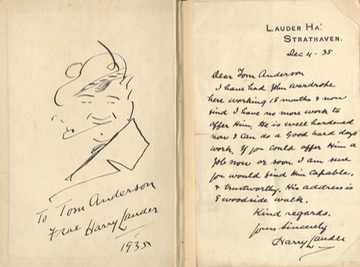 To Tom Anderson
Frae Harry Lauder
1935
LAUDER HA'
STRATHAVEN.
Dec 4 - 35
Dear Tom Anderson
I have had John Wardrobe
here working 18 months & now
find I have no more work to
offer Him, He is well hardened
now & can do a Good hard days
work. If you could offer Him a
Job now or soon I am sure
you would find Him Capable,
& trustworthy. His address is
5 woodside walk.
Kind regards.
Yours Sincerely
Harry Lauder